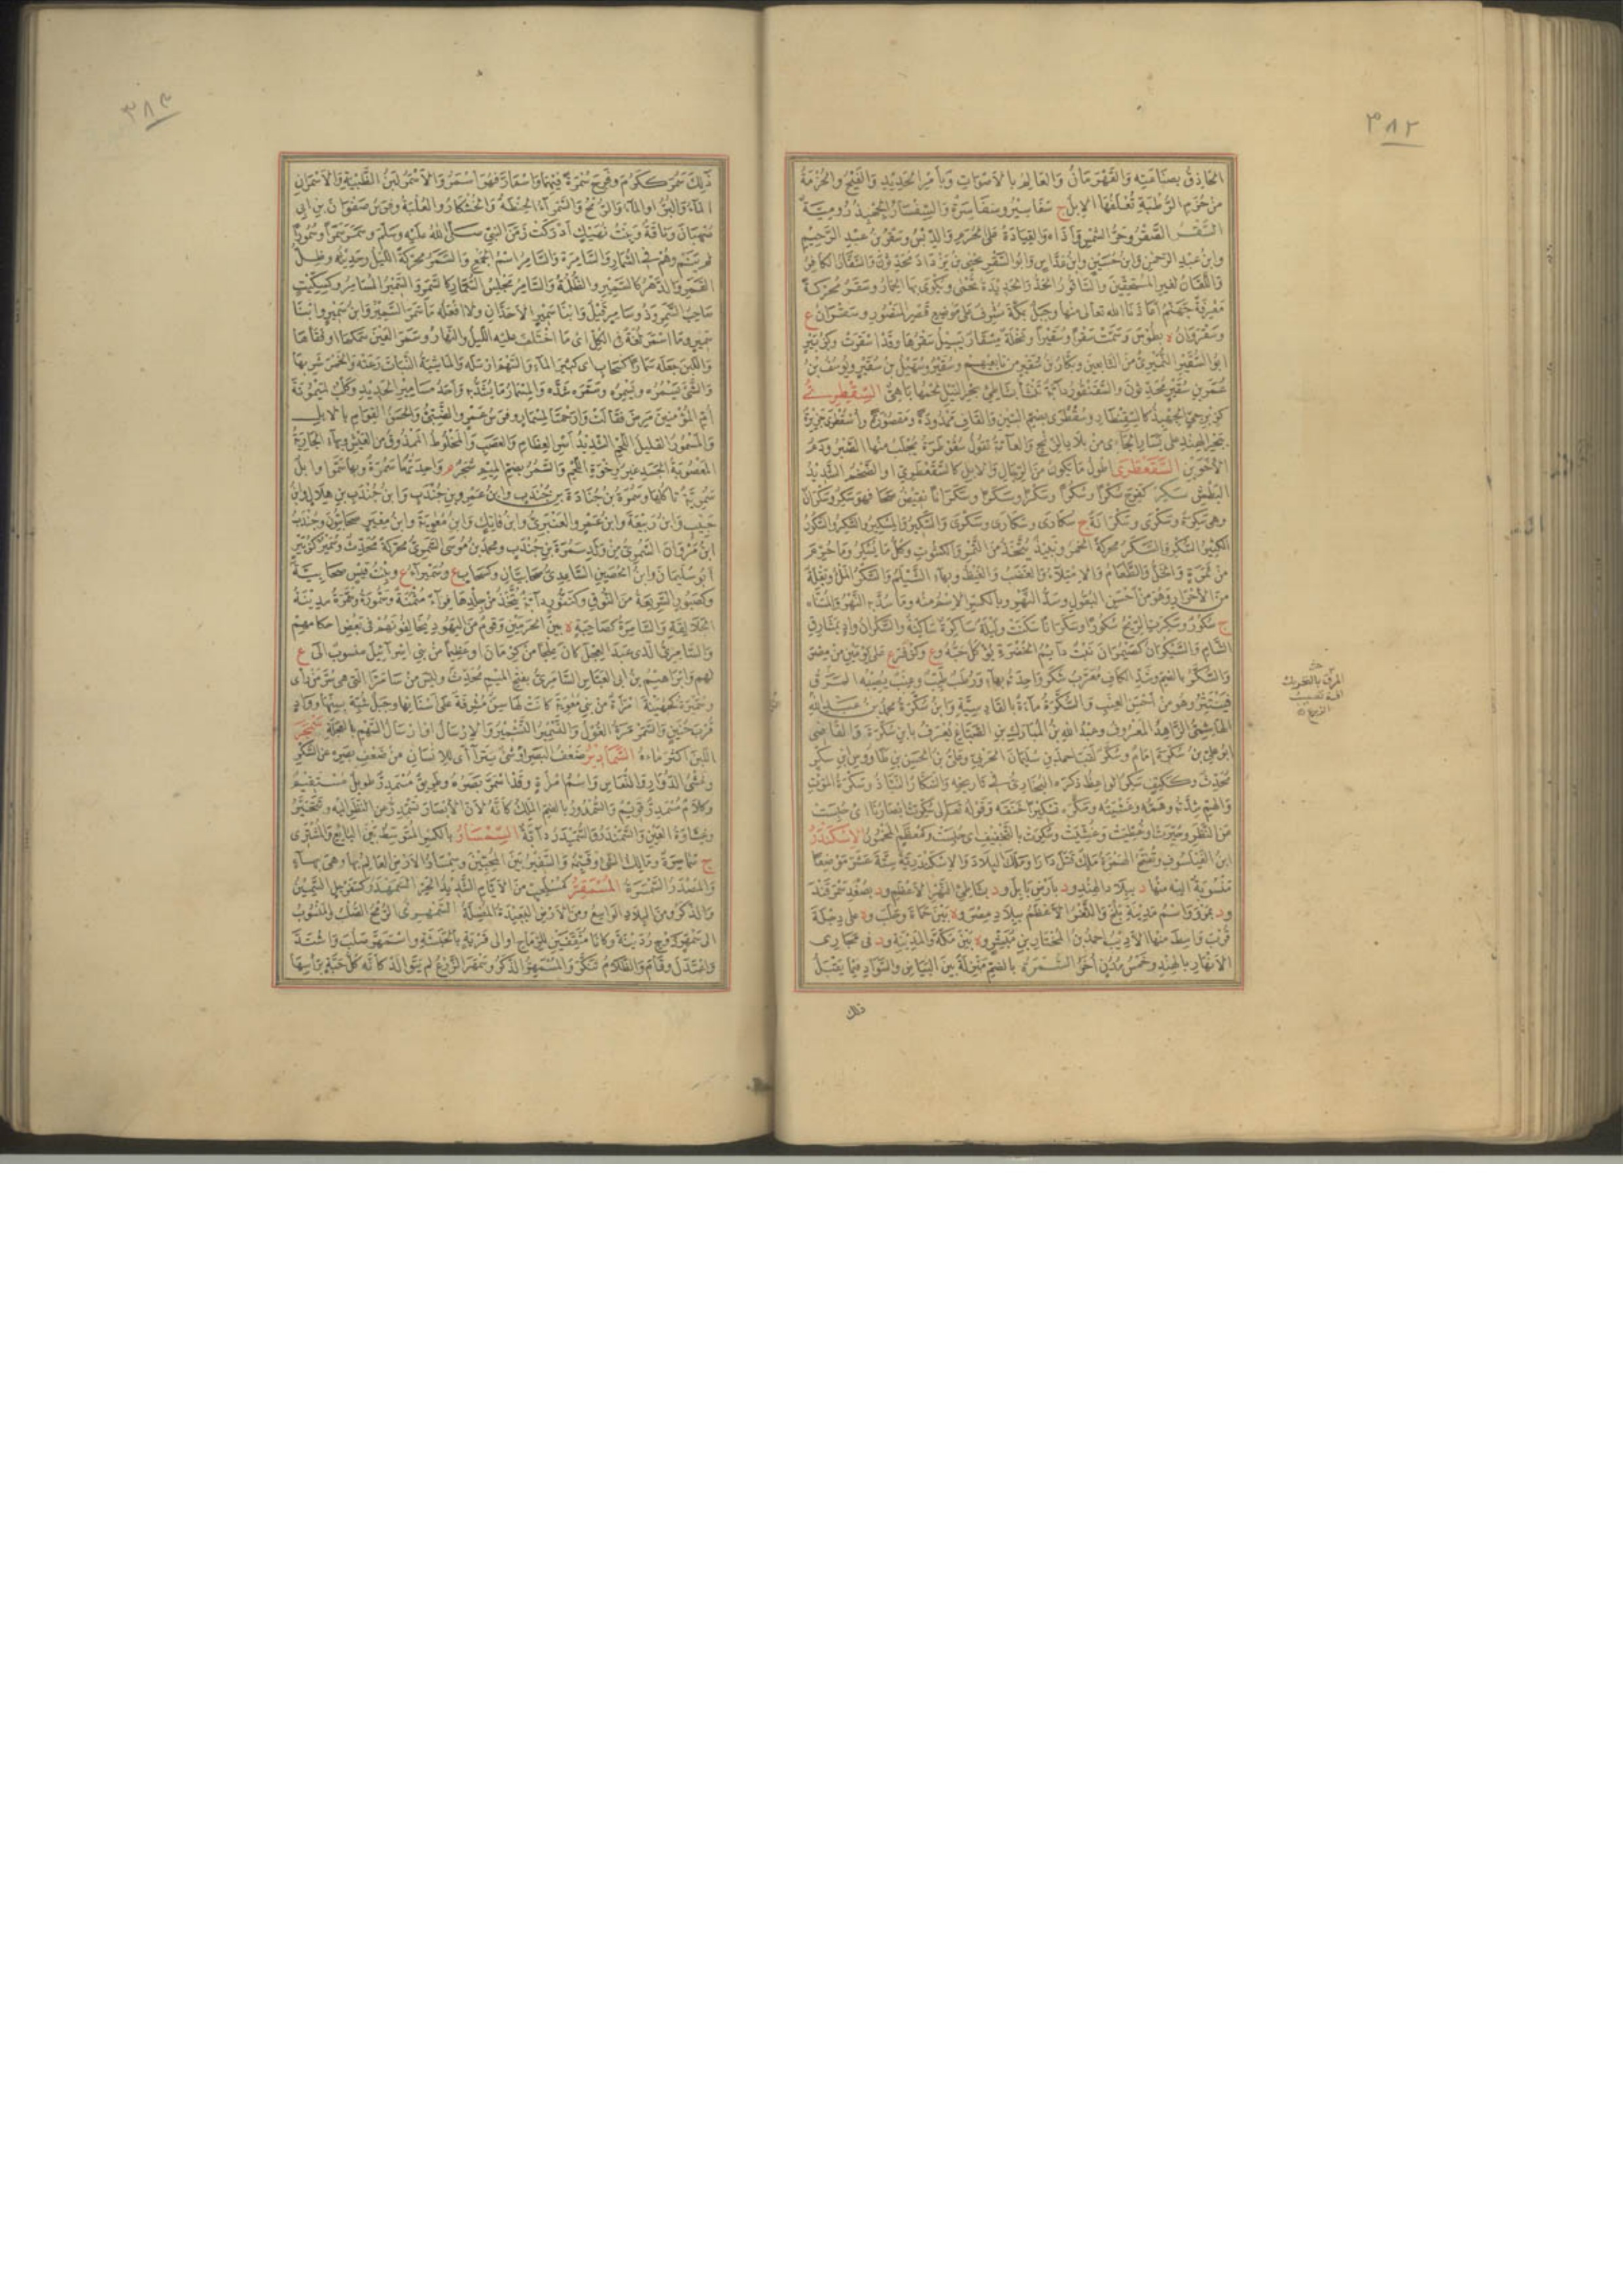 ٣٨٢
الحاذق بصناعته والقهرمان والعالم بالاصوات وبامر الحديد والفيج والحزمة
من حزم الرطبة تعلفها الابل ج سفاسير وسفاسرة والسفسار الجهبذ رومية
السقر الصقر وحر الشمس واذاه والقيادة على الحرم والدبس وسقر بن عبد الرحيم
وابن عبد الرحمن وابن حسين وابن عداس وابو السقر يحيى بن يزداد محدثون والسقار الكافر
واللعان لغير المستحقين والساقور الحر والحديدة تحمى ويكوى بها الحمار وسقر محركة
معرفة جهنم اعاذنا الله تعالى منها وجبل بمكة مشرف على موضع قصر المنصور وسقران ع
وسقروان ه بطوس
ابو السقير النميرى من التابعين وبكار بن سقير من تابعيهم وسقير وسهيل بن سقير ويوسف بن
عمر بن سقير محدثون والسقنقور دابة تنشأ بشاطئ بحر النيل لحمها باهى السقطرى
الاخوين السقعطرى اطول ما يكون من الرجال والابل كالسقعطرى او الضخم الشديد
البطش سكر كفرح سكرا وسكرا وسكرا وسكرا وسكرانا نقيض صحا فهو سكر وسكران
وهى سكرة وسكرى وسكرانة ج سكارى وسكارى وسكرى والسكير والمسكير والسكر والسكور
الكثير السكر والسكر محركة الخمر ونبيذ يتخذ من التمر والكشوث وكل ما يسكر وما حرم
من ثمرة والخل والطعام والامتلاء والغضب والغيظ وبهاء الشيلم والسكر الملء وبقلة
من الاحرار وهو من احسن البقول وسد النهر وبالكسر الاسم منه وما سد به النهر والمسناة
ج سكور وسكرت الريح سكورا وسكرانا سكنت وليلة ساكرة ساكنة والسكران واد بمشارق
الشام والسيكران كضيمران نبت دائم الخضرة يؤكل حبه وع وكزفر ع على يومين من مصر
والسكر بالضم وشد الكاف معرب شكر واحدته بهاء ورطب طيب وعنب يصيبه المرق
فينتثر وهو من احسن العنب والسكرة ماءة بالقادسية وابن سكرة محمد بن عبد الله
الهاشمى الزاهد المعروف وعبد الله بن المبارك بن الصباغ يعرف بابن سكرة والقاضى
ابو على بن سكرة امام وسكر لقب احمد بن سليمان الحربى وعلى بن الحسن بن طاووس بن سكر
محدث وككتف سكر الواعظ ذكره البخارى فى تاريخه والسكار النباذ وسكرة الموت
والهم شدته وهمه وغشيته وسكره تسكيرا خنقه وقوله تعالى سكرت ابصارنا اى حبست
عن النظر وحيرت او غطيت وغشيت وسكرت بالتخفيف اى حبست وكمعظم المخمور الاسكندر
ابن الفيلسوف وتفتح الهمزة ملك قتل دارا وملك البلاد والاسكندرية ستة عشر موضعا
منسوبة اليه منها د ببلاد الهند ود بارض بابل ود بشاطئ النهر الاعظم ود بصغد سمرقند
ود بمرو واسم مدينة بلخ والثغر الاعظم ببلاد مصر وه بين حماة وحلب وه على دجلة
قرب واسط منها الاديب احمد بن المختار بن مبشر وه بين مكة والمدينة ود فى مجارى
الانهار بالهند وخمس مدن اخر السمرة بالضم منزلة بين البياض والسواد فيما يقبل
ذلك
المرق بالتحريك
آفة تصيب
الزرع
٣٨٣
ذلك سمر ككرم وفرح سمرة فيهما واسمار فهو اسمر والاسمر لبن الظبية والاسمران
الماء والبر او الماء والرمح والسمراء الحنطة والخشكار والعلبة وفرس صفوان بن ابى
صهبان وناقة وبنت نهيك ادركت زمن النبى صلى الله عليه وسلم وسمر سمرا وسمورا
لم ينم وهم السمار والسامرة والسامر اسم الجمع والسمر محركة الليل وحديثه وظل
القمر والدهر كالسمير والظلمة والسامر مجلس السمار كالسمر والسمير المسامر وكسكيت
صاحب السمر وذو سامر قيل وابنا سمير الاجدان ولا افعله ما سمر السمير وابن سمير وابنا
سمير وما اسمر لغة فى الكل اى ما اختلف عليه الليل والنهار وسمر العين سملها او فقأها
واللبن جعله سمارا كسحاب اى كثير الماء والسهم ارسله والماشية النبات رعته والخمر شربها
والشئ يسمره ويسمره وسمره شده والمسمار ما يشد به واحد مسامير الحديد وكلب لميمونة
ام المؤمنين مرض فقالت وارحمتا لمسمار وفرس عمرو الضبى والحسن القوام بالابل
والمسمور القليل اللحم الشديد اسر العظام والعصب والمخلوط الممذوق من العيش وبهاء الجارية
المعصوبة الجسد غير رخوة اللحم والسمر بضم الميم شجر م واحدتها سمرة وبها سموا وابل
سمرية تاكلها وسمرة بن جنادة بن جندب وابن عمرو بن جندب وابن جندب بن هلال وابن
حبيب وابن ربيعة وابن عمرو العنبرى وابن فاتك وابن معوية وابن معير صحابيون وجندب
ابن مروان السمرى من ولد سمرة بن جندب ومحمد بن موسى السمرى محركة محدث وسمير كزبير
ابو سليمان وابن الحصين الساعدى صحابيان وكسحاب ع وسميراء ع وبنت قيس صحابية
وكصبور السريعة من النوق وكتنور دابة يتخذ من جلدها فراء مثمنة وسمورة وسمرة مدينة
الجلالقة والسامرة كصاحبة ه بين الحرمين وقوم من اليهود يخالفونهم فى بعض احكامهم
والسامرى الذى عبد العجل كان علجا من كرمان او عظيما من بنى اسرائيل منسوب الى ع
لهم وابراهيم بن ابى العباس السامرى بفتح الميم محدث وليس من سامرا التى هى سر من رأى
وسميرة كجهينة امرأة من بنى معوية كانت لها سن مشرفة على اسنانها وجبل شبه بسنها وواد
قرب حنين والسمرمرة الغول والتسمير التشمير والارسال او ارسال السهم بالعجلة سمجر
اللبن اكثر ماءه السمادير ضعف البصر او شئ يتراآى للانسان من ضعف بصره عن السكر
وغشى الدوار والنعاس واسم امرأة وقد اسمدر بصره وطريق مسمدر طويل مستقيم
وكلام مسمدر قويم والسمدور بالضم الملك كانه لان الابصار تسمدر من النظر اليه وتتحير
وغشاوة العين والسمندر والسميدر دابة السمسار بالكسر المتوسط بين البايع والمشترى
ج سماسرة ومالك الشئ وقيمه والسفير بين المحبين وسمسار الارض العالم بها وهى بهاء
والمصدر السمسرة المسمقر كمسلعب من الايام الشديد الحر السمهدر كسفرجل السمين
والذكر ومن البلاد الواسع ومن الارض البعيدة المضلة السمهرى الرمح الصلب والمنسوب
الى سمهر زوج ردينة وكانا مثقفين للرماح او الى قرية بالحبشة واسمهر صلب واشتد
واعتدل وقام والظلام تنكر والمسمهر الذكر وسمهر الزرع لم يتوالد كانه كل حبة برأسها